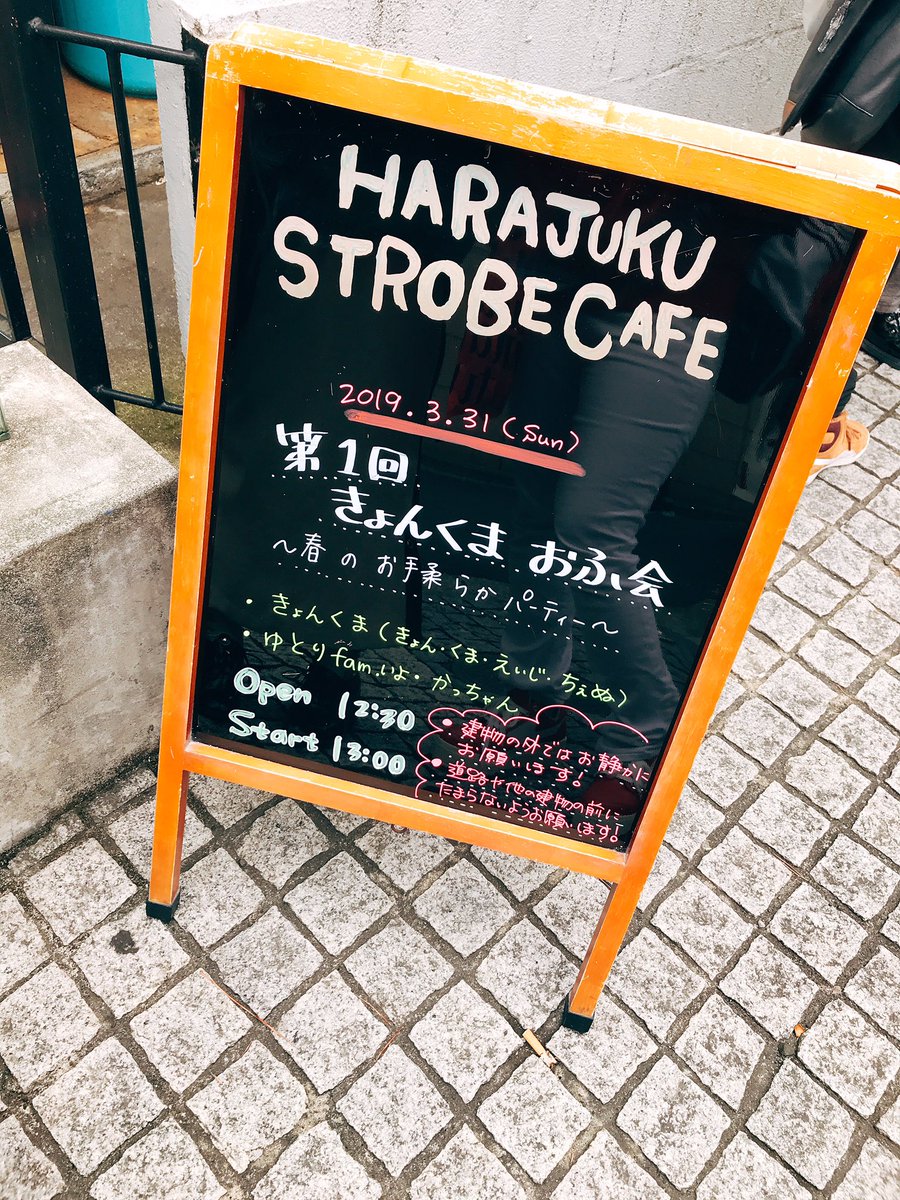 HARAJUKU
STROBE CAFE
2019.3.31(Sun)
第1回
きょんくま おふ会
～春のお手柔らかパーティー～
・きょんくま(きょん・くま・えいじ・ちぇぬ)
・ゆとりfam.いよ・かっちゃん
Open 12:30
Start 13:00
・建物の外ではお静かに
お願いします!
・道路や他の建物の前に
たまらないようお願いします!